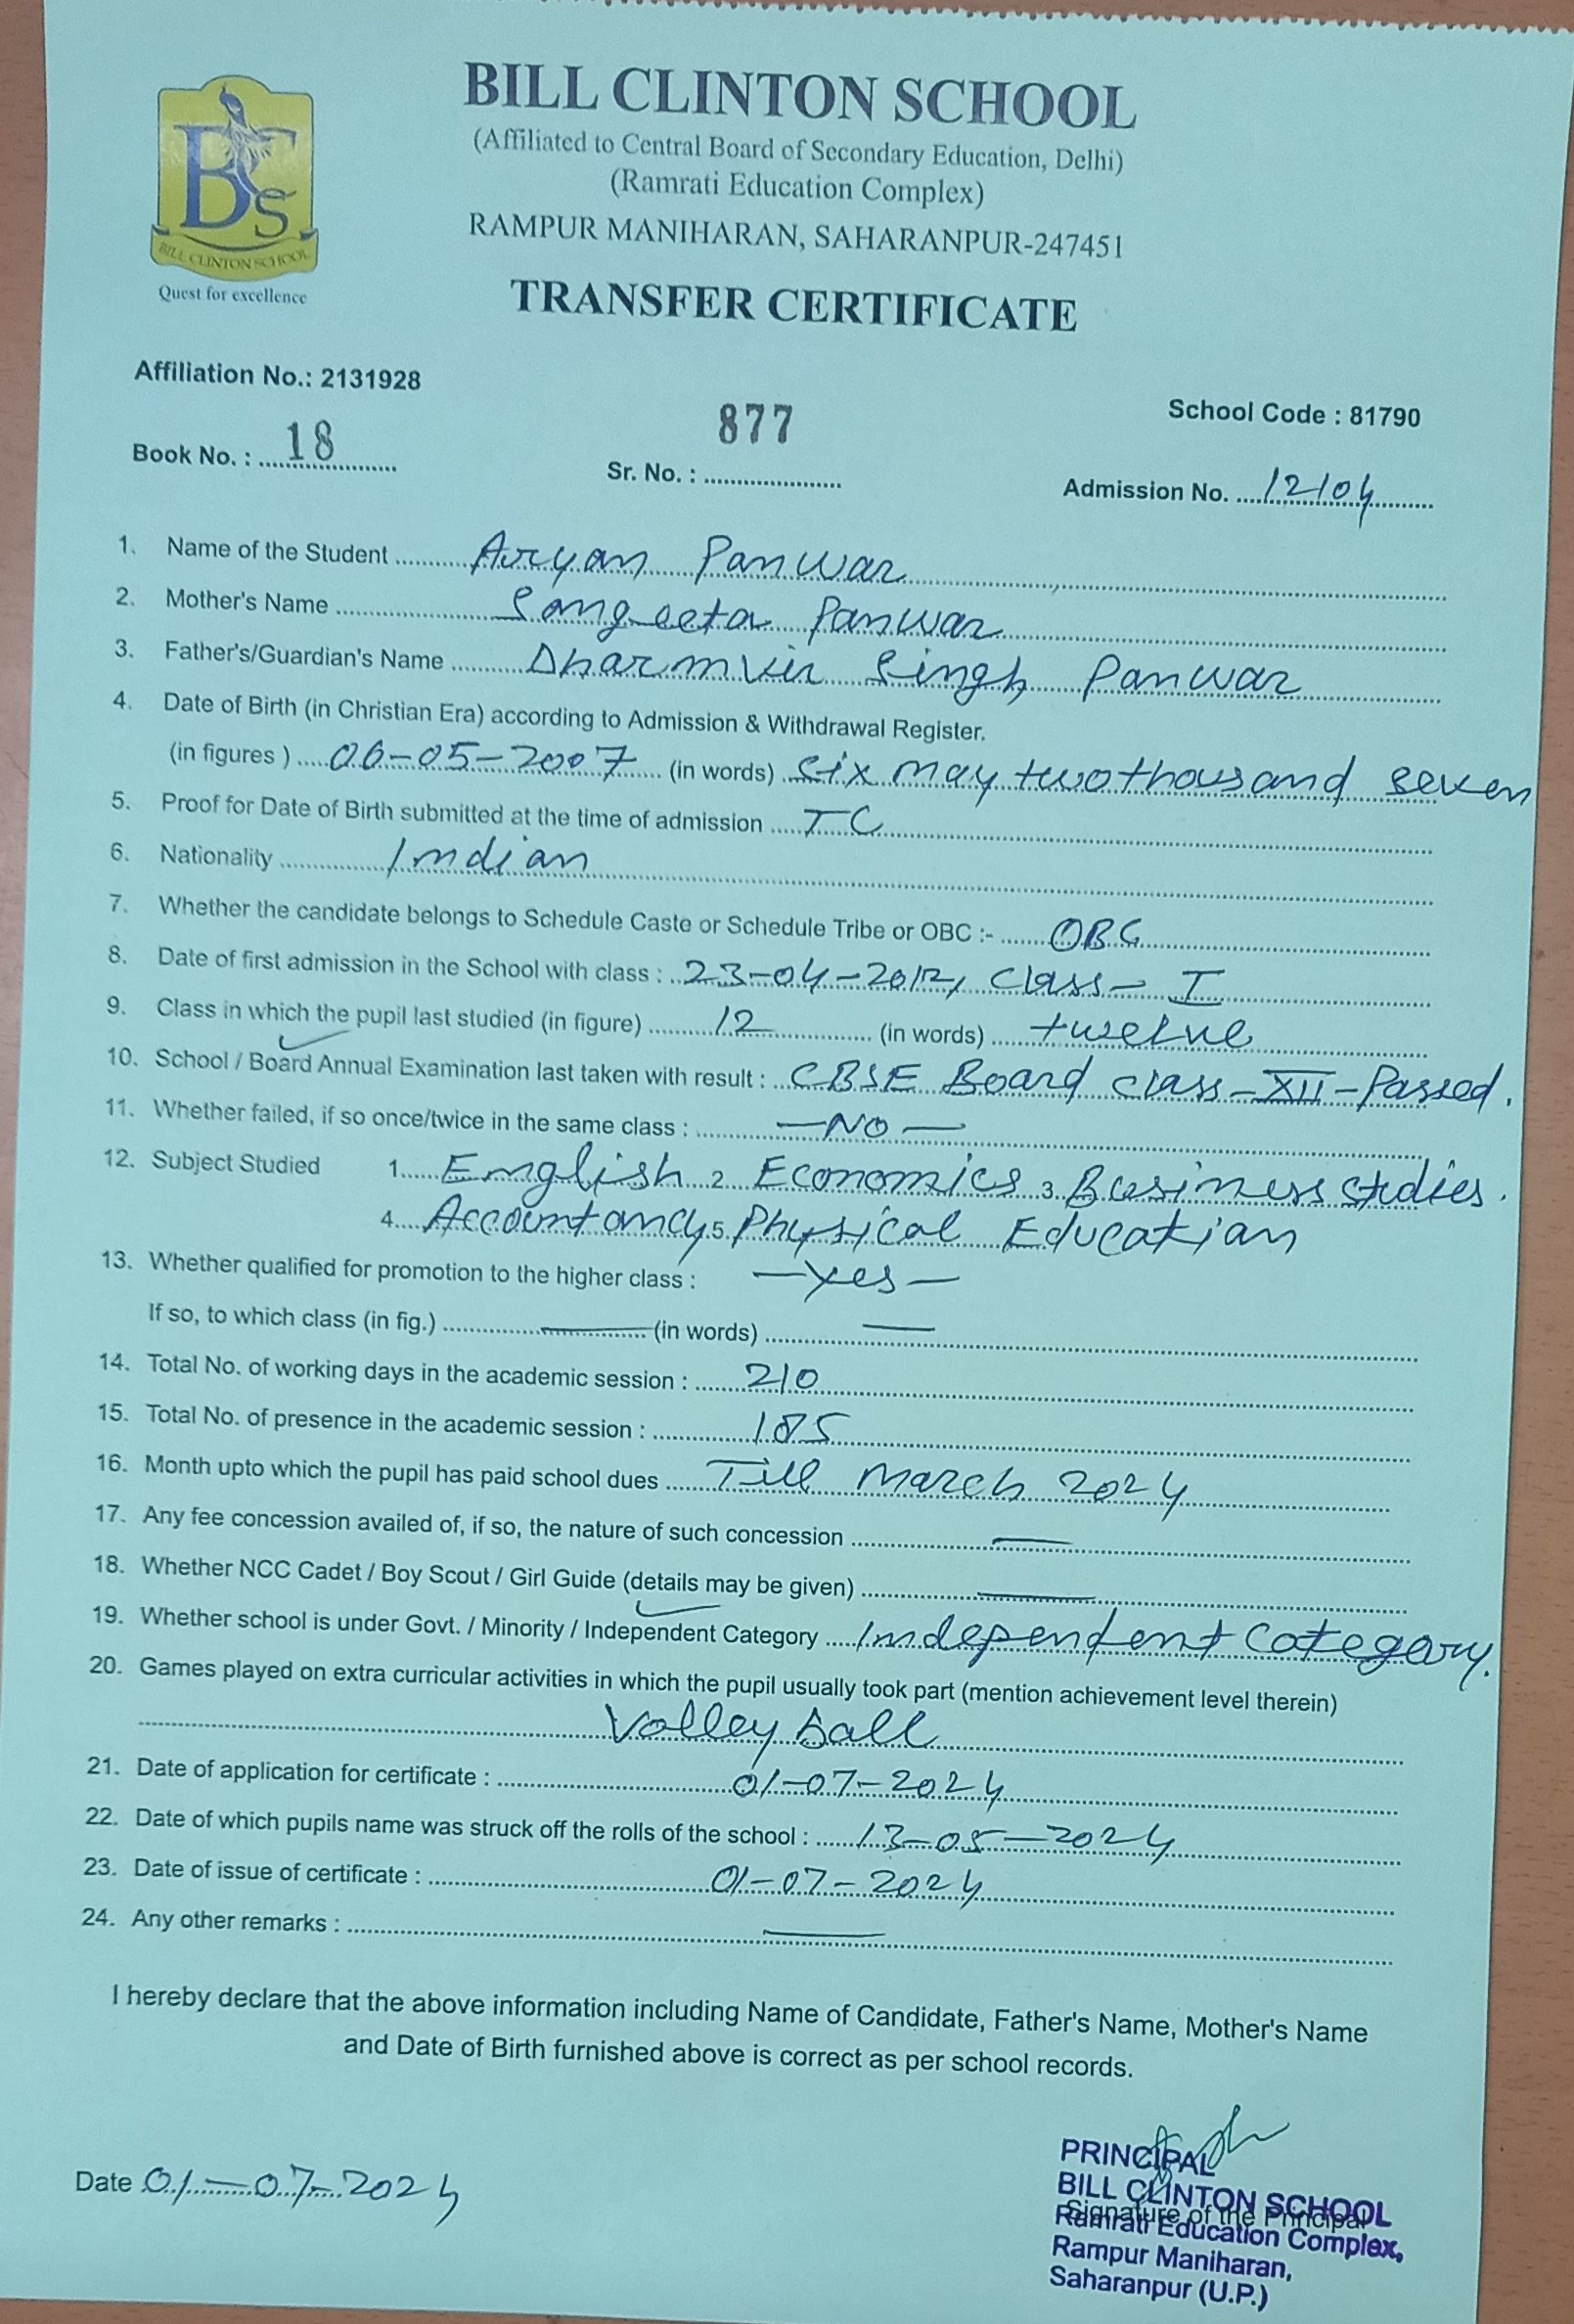 BILL CLINTON SCHOOL
(Affiliated to Central Board of Secondary Education, Delhi)
(Ramrati Education Complex)
RAMPUR MANIHARAN, SAHARANPUR-247451
BCS
BILL CLINTON SCHOOL
Quest for excellence
TRANSFER CERTIFICATE
Affiliation No.: 2131928
School Code : 81790
Book No. : 18 Sr. No. : 877 Admission No. 12104
1. Name of the Student Aryan Panwar
2. Mother's Name Sangeeta Panwar
3. Father's/Guardian's Name Dharmvir Singh Panwar
4. Date of Birth (in Christian Era) according to Admission & Withdrawal Register.
(in figures ) 06-05-2007 (in words) Six may two thousand seven
5. Proof for Date of Birth submitted at the time of admission TC
6. Nationality Indian
7. Whether the candidate belongs to Schedule Caste or Schedule Tribe or OBC :- OBC
8. Date of first admission in the School with class : 23-04-2012, Class- I
9. Class in which the pupil last studied (in figure) 12 (in words) twelve
10. School / Board Annual Examination last taken with result : CBSE Board class-XII-Passed.
11. Whether failed, if so once/twice in the same class : -NO-
12. Subject Studied 1. English 2. Economics 3. Business studies.
4. Accountancy 5. Physical Education
13. Whether qualified for promotion to the higher class : -yes-
If so, to which class (in fig.) — (in words) —
14. Total No. of working days in the academic session : 210
15. Total No. of presence in the academic session : 185
16. Month upto which the pupil has paid school dues Till March 2024
17. Any fee concession availed of, if so, the nature of such concession —
18. Whether NCC Cadet / Boy Scout / Girl Guide (details may be given) —
19. Whether school is under Govt. / Minority / Independent Category Independent Category.
20. Games played on extra curricular activities in which the pupil usually took part (mention achievement level therein)
Volley ball
21. Date of application for certificate : 01-07-2024
22. Date of which pupils name was struck off the rolls of the school : 13-05-2024
23. Date of issue of certificate : 01-07-2024
24. Any other remarks : —
I hereby declare that the above information including Name of Candidate, Father's Name, Mother's Name
and Date of Birth furnished above is correct as per school records.
Date 01-07-2024
PRINCIPAL
BILL CLINTON SCHOOL
Signature of the Principal
Ramrati Education Complex,
Rampur Maniharan,
Saharanpur (U.P.)